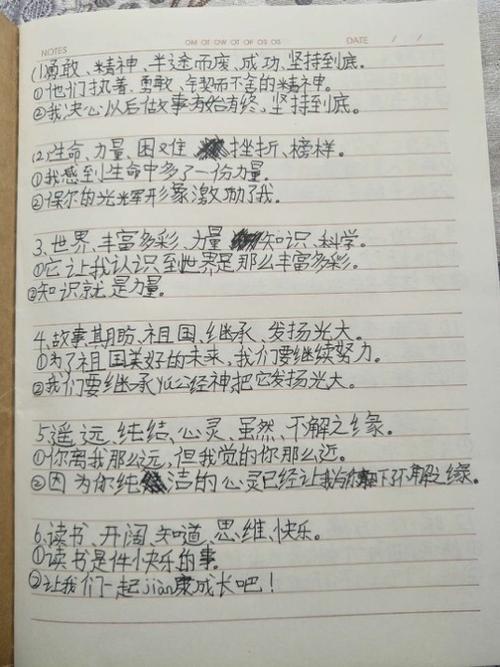 NOTES
MO TU WE TH FR SA SU
DATE / /
(1勇敢、精神、半途而废、成功、坚持到底。
①他们执着、勇敢、锲而不舍的精神。
②我决心以后做事有始有终,坚持到底。
(2)生命、力量、困难 挫折、榜样。
①我感到生命中多了一份力量。
②保尔的光辉形象激励了我。
3.世界、丰富多彩、力量 知识、科学。
①它让我认识到世界是那么丰富多彩。
②知识就是力量。
4.故事期盼、祖国、继承、发扬光大。
①为了祖国美好的未来,我们要继续努力。
②我们要继承yu公经神把它发扬光大。
5.遥远、纯结、心灵、虽然、不解之缘。
①你离我那么远,但我觉的你那么近。
②因为你纯洁的心灵已经让我与你 下了不解之缘。
6.读书、开阔、知道、思维、快乐。
①读书是件快乐的事。
②让我们一起jian康成长吧!